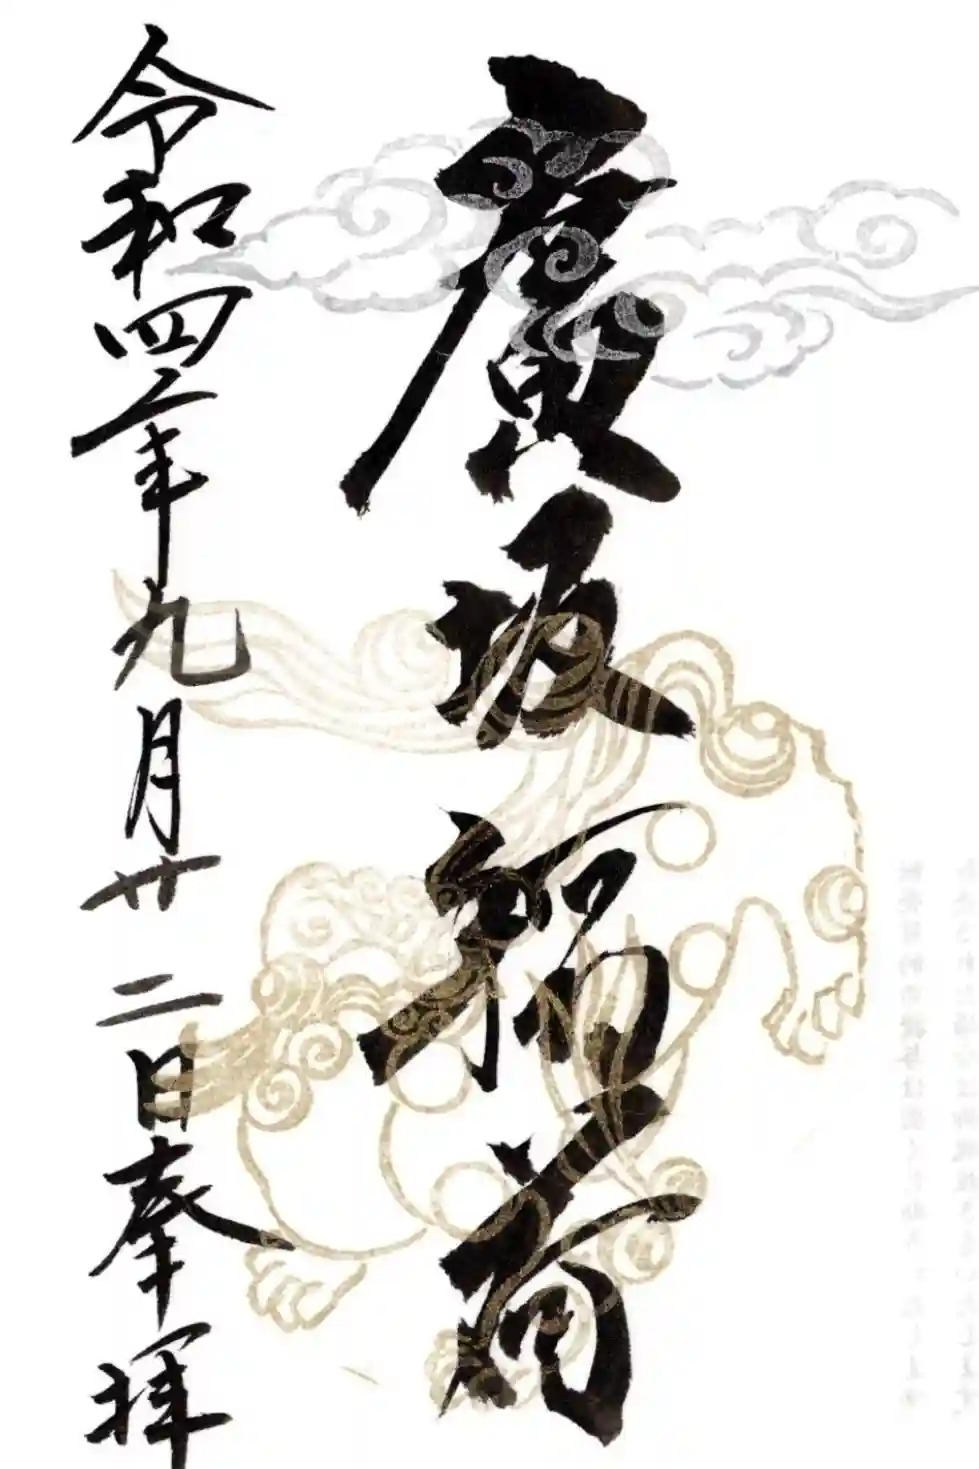 廣坂稲荷
令和四年九月廿二日奉拝